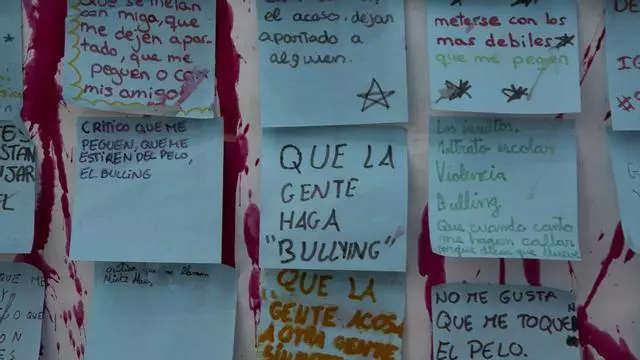 Que se metan
con miga, que
me dejen apar-
tado, que me
peguen o con
mis amigo
el acoso, dejar
apartado a
alguien.
meterse con los
mas debiles
que me peguen
STAN
JAR
EL
CRITICO QUE ME
PEGUEN, QUE ME
ESTIREN DEL PELO,
EL BULLING
QUE LA
GENTE
HAGA
"BULLYING"
Los insultos.
Maltrato escolar
Violencia
Bulling
Que cuando canto
me hagan callar
porque dicen que llueve
QUE ME
critico que me llaman
QUE LA
GENTE ACOSA
A OTRA GENTE
NO ME GUSTA
QUE ME TOQUEN
EL PELO.